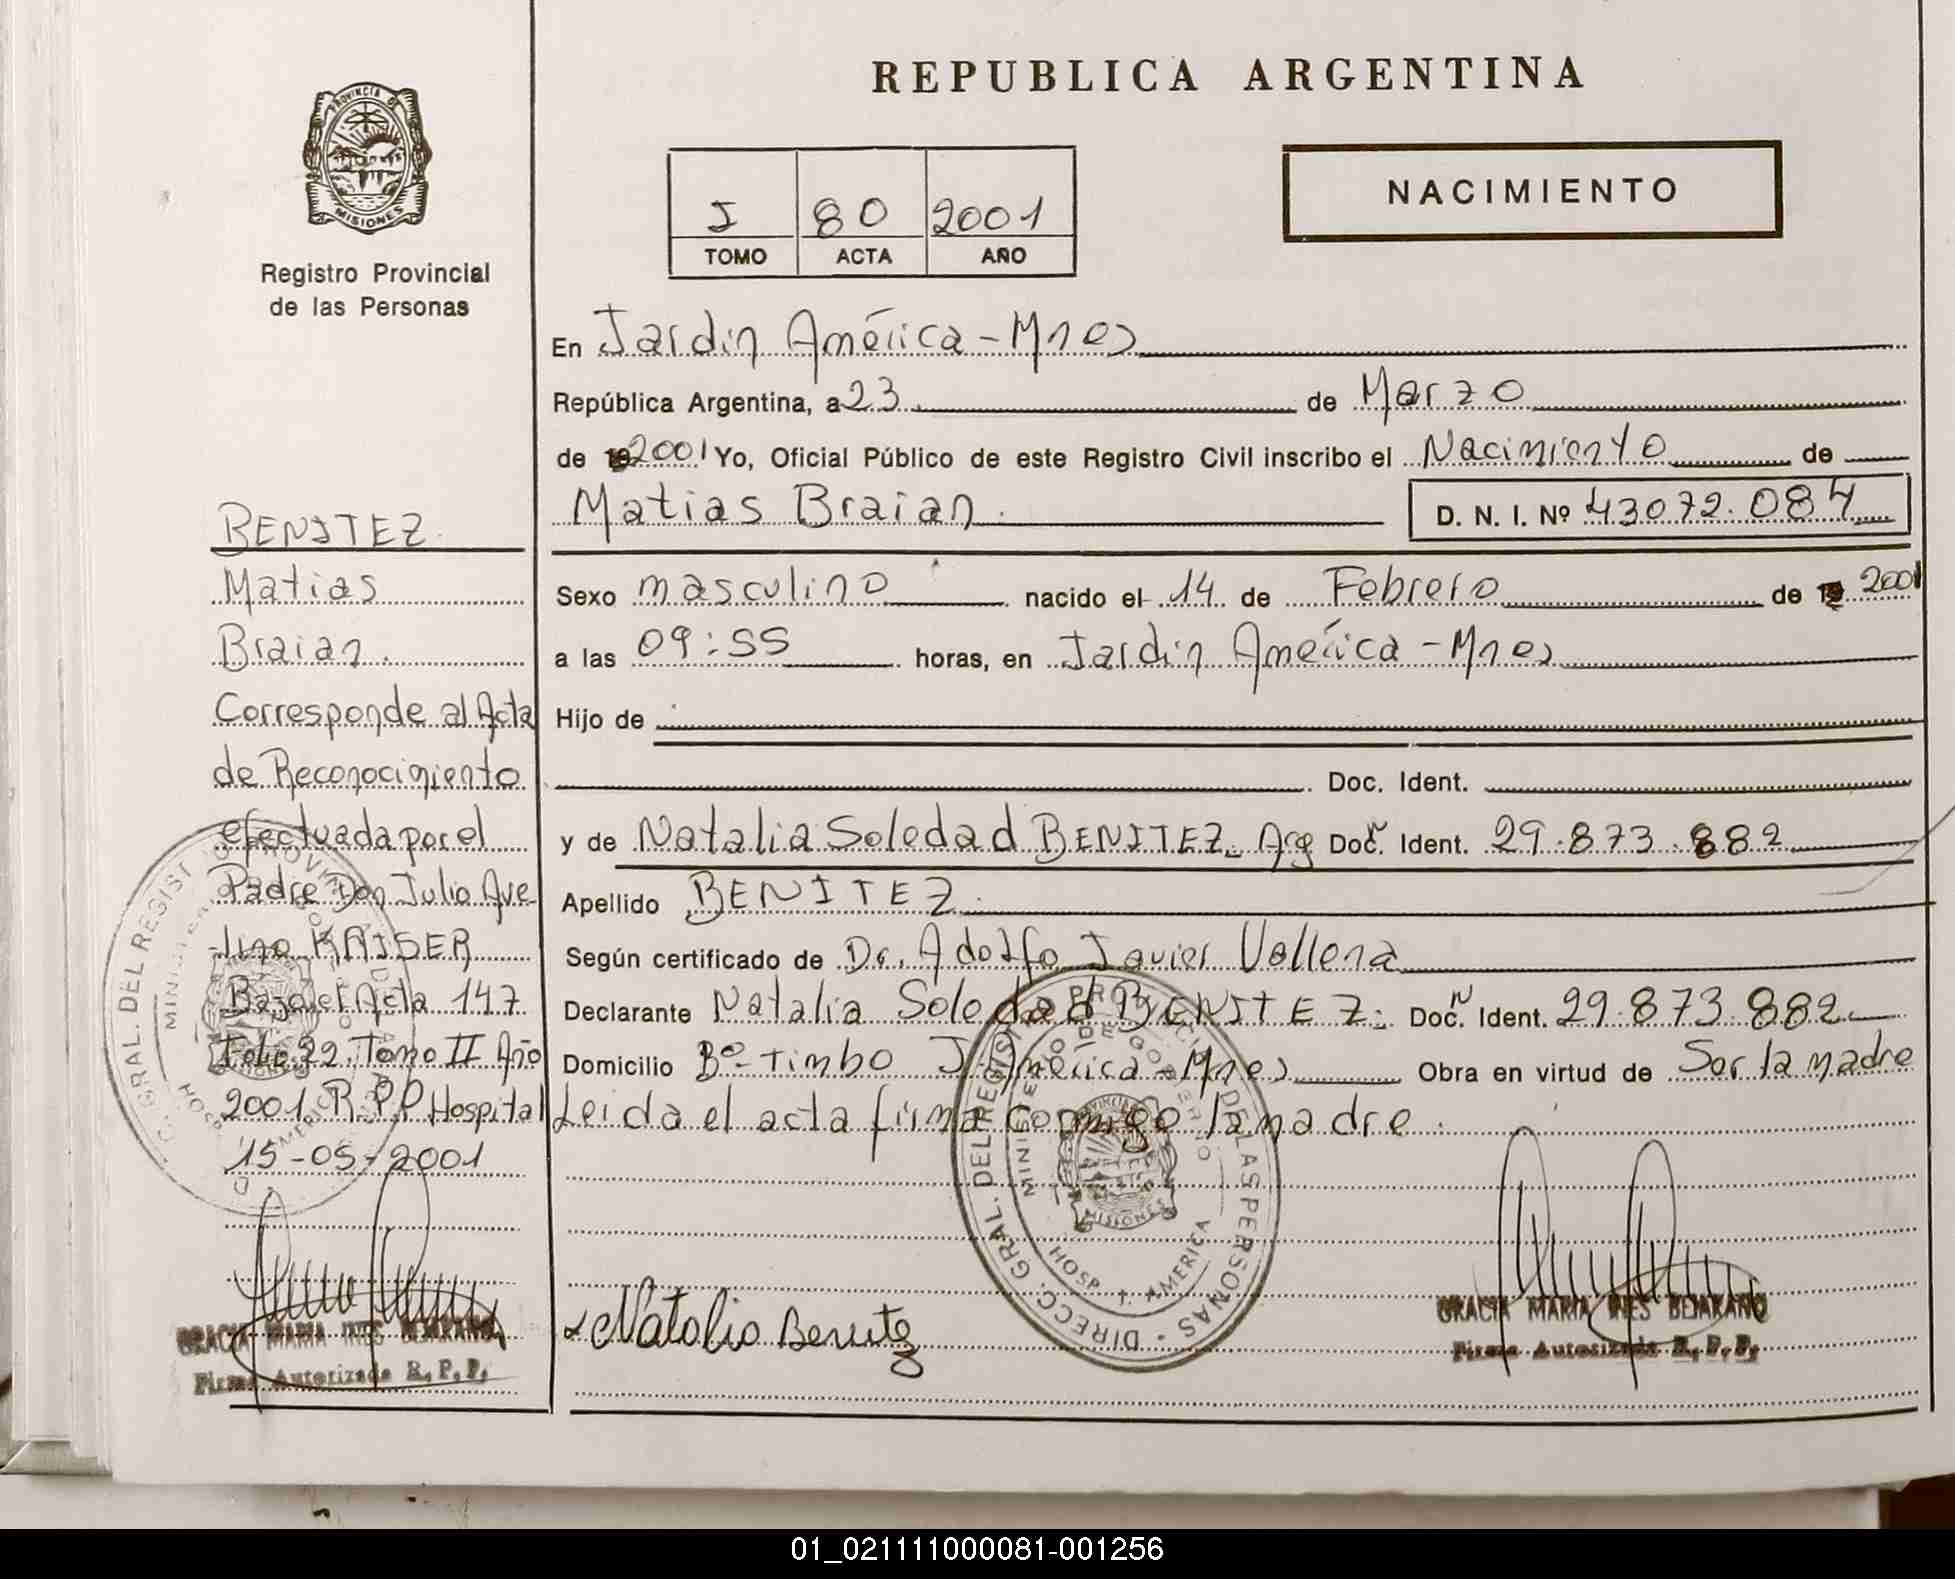 REPUBLICA ARGENTINA
PROVINCIA DE
MISIONES
Registro Provincial
de las Personas
I 80 2001
TOMO ACTA AÑO
NACIMIENTO
En Jardin América - Mnes
República Argentina, a 23 de Marzo
de 2001 Yo, Oficial Público de este Registro Civil inscribo el Nacimiento de
Matias Braian. D. N. I. Nº 43072.084
Sexo masculino nacido el 14 de Febrero de 2001
a las 09:55 horas, en Jardin América - Mnes
Hijo de
Doc. Ident.
y de Natalia Soledad BENITEZ. Arg Doc. Ident. 29.873.882
Apellido BENITEZ.
Según certificado de Dr. Adolfo Javier Vallena
Declarante Natalia Soledad BENITEZ. Doc. Ident. 29.873.882
Domicilio Bº Timbo J. América - Mnes Obra en virtud de Ser la madre
Leida el acta firma conmigo la madre.
BENITEZ.
Matias
Braian.
Corresponde al Acta
de Reconocimiento
efectuada por el
Padre Don Julio Ave-
-lino KAISER
Bajo el Acta 147
Folio 22. Tomo II Año
2001. R.P.P Hospital
15-05-2001
GRACIA MARIA INES BEJARANO
Firma Autorizada R.P.P.
Natalia Benitez
DIRECC. GRAL. DEL REGISTRO PROVINCIAL DE LAS PERSONAS
MINISTERIO DE GOBIERNO
HOSP. J. AMERICA
MISIONES
GRACIA MARIA INES BEJARANO
Firma Autorizada R.P.P.
01_021111000081-001256